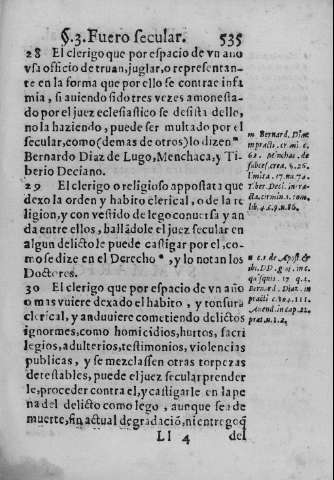 §.3. Fuero secular. 535
28 El clerigo que por espacio de vn año
vsa officio de truan, juglar, o representan-
te en la forma que por ello se contrae infa
mia, si auiendo sido tres vezes amonesta-
do por el juez eclesiastico se desista dello,
no la haziendo, puede ser multado por el
secular, como (demas de otros) lo dizen m
Bernardo Diaz de Lugo, Menchaca, y Ti-
berio Deciano.
29 El clerigo o religioso appostata que
dexo la orden y habito clerical, o de la re
ligion, y con vestido de lego conuersa y an
da entre ellos, hallādole el juez secular en
algun delicto le puede castigar por el, co-
mo se dize en el Derecho n, y lo notan los
Doctores.
30 El clerigo que por espacio de vn año
o mas vuiere dexado el habito, y tonsura
clerical, y anduuiere cometiendo delictos
ignormes, como homicidios, hurtos, sacri
legios, adulterios, testimonios, violencias
publicas, y se mezclassen otras torpezas
detestables, puede el juez secular prender
le, proceder contra el, y castigarle en la pe
na del delicto como lego, aunque sea de
muerte, sin actual degradaciō, ni entregoq̄
Ll 4 del
m Bernard. Di
in pract. cr
62.
de
succes. crea. §. 26.
limita. 17. na. 72.
Tiber. Deci. in tra-
cta. crimin. 1. tom.
lib. 4. c. 9. n. 86.
n c. 1. de Apost. &
ibi. DD.
quisquis. 17 q. 4.
Bernard. Diaz. in
practi c.
Auend. in cap.
præt. n. 12.